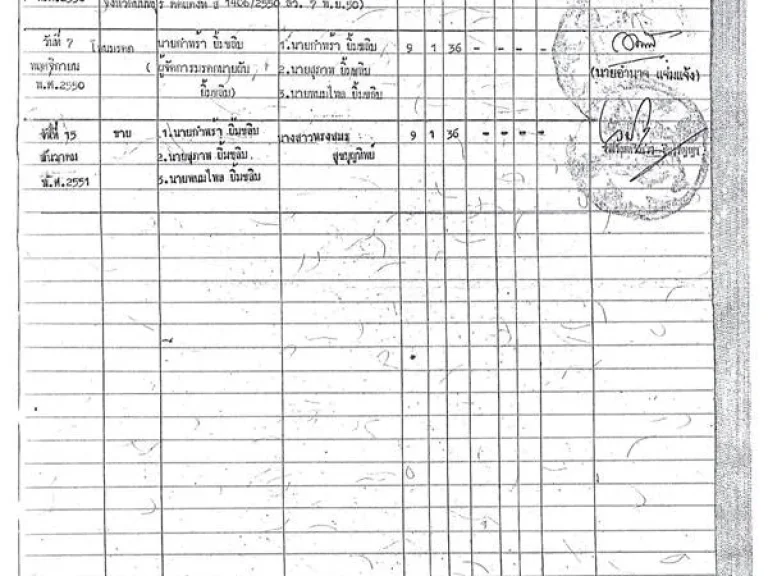 วันที่ 7 โอนมรดก นายกำพร้า ยิ้มขลิบ 1.นายกำพร้า ยิ้มขลิบ 9 1 36 - - - -
พฤศจิกายน ( ผู้จัดการมรดกนายดับ 2.นายสุภาพ ยิ้มขลิบ (นายอำนาจ แจ่มแจ้ง)
พ.ศ.2550 ยิ้มขลิบ) 3.นายพนมไพล ยิ้มขลิบ
วันที่ 15 ขาย 1.นายกำพร้า ยิ้มขลิบ นางสาวทรงสมร 9 1 36 - - - -
ธันวาคม 2.นายสุภาพ ยิ้มขลิบ สุขบุญทิพย์
พ.ศ.2551 3.นายพนมไพล ยิ้มขลิบ